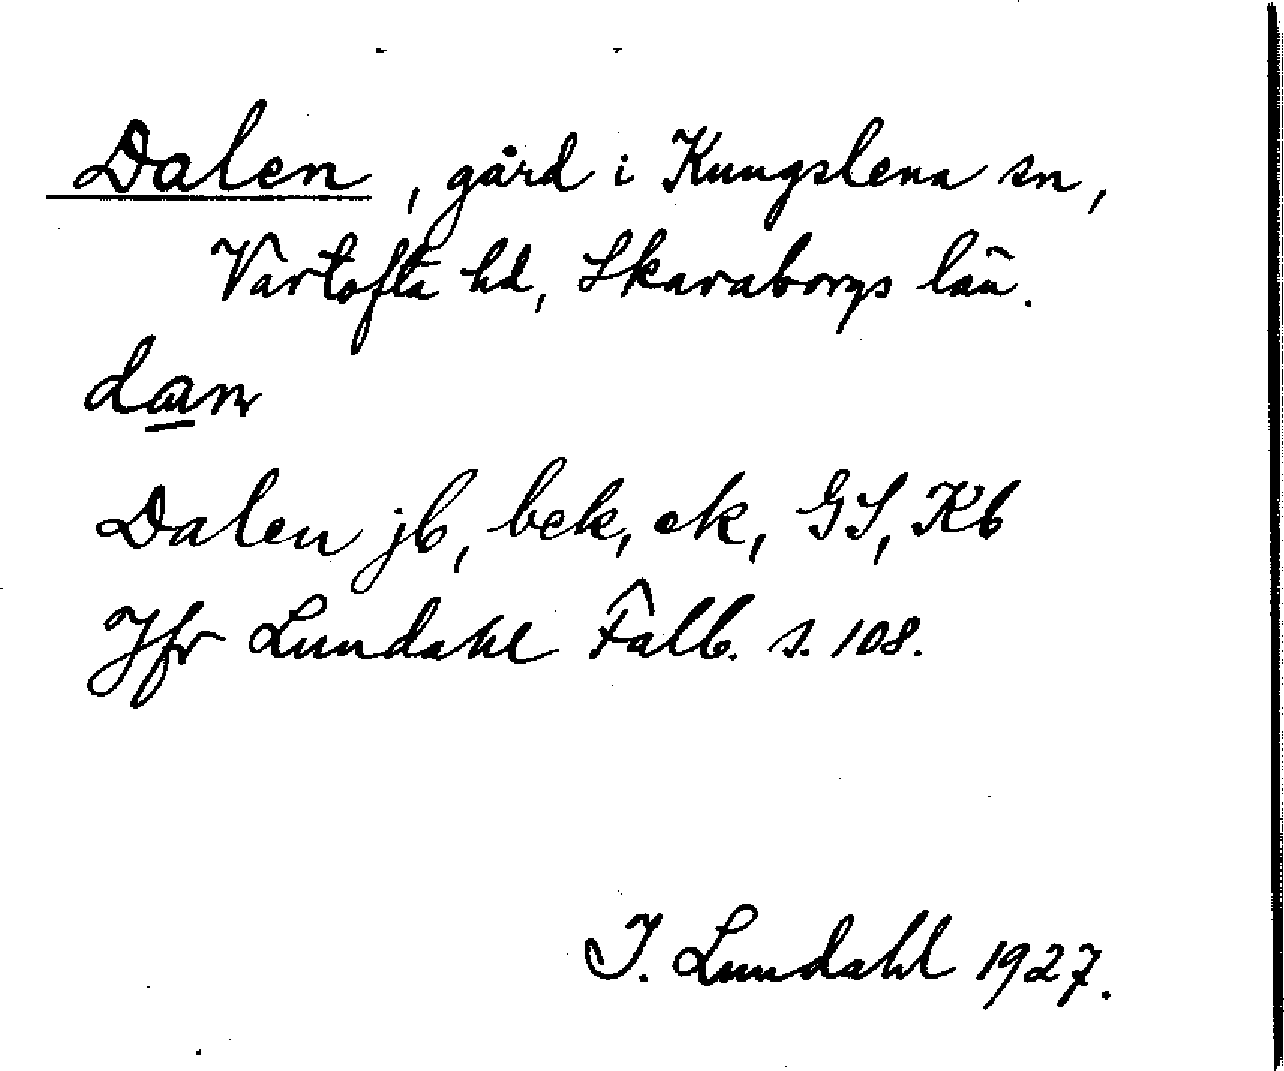 Dalen, gård i Kungslena sn,
Vartofta hd, Skaraborgs län.
Dalen jb, bek, ek, GS, Kb
Jfr Lundahl Falb. s. 108.
I. Lundahl 1927.